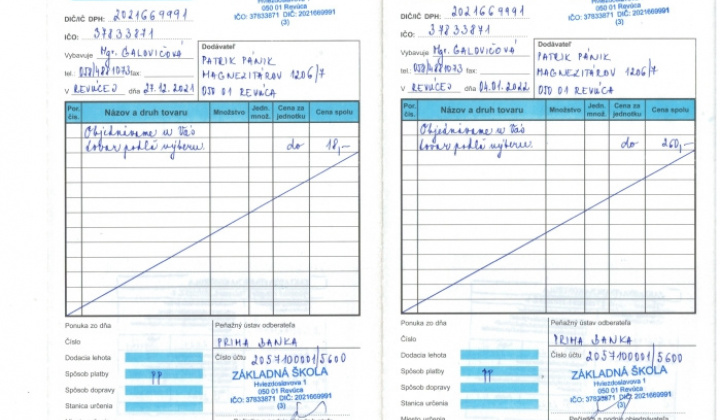 DIČ/IČ DPH: 2021669991
IČO: 37833871
Vybavuje Mgr. GALOVIČOVÁ
tel.: 058/4881073 fax:
V REVÚCEJ dňa 27.12.2021
050 01 Revúca
IČO: 37833871 DIČ: 2021669991
(3)
Dodávateľ
PATRIK PÁNIK
MAGNEZITÁROV 1206/7
050 01 REVÚCA
Por. čís.
Názov a druh tovaru
Množstvo
Jedn. množ.
Cena za jednotku
Cena spolu
Objednávame u Vás
tovar podľa výberu do 18,-
Ponuka zo dňa
Číslo
Dodacia lehota
Spôsob platby PP
Spôsob dopravy
Stanica určenia
Peňažný ústav odberateľa
PRIMA BANKA
Číslo účtu 2057100001/5600
ZÁKLADNÁ ŠKOLA
Hviezdoslavova 1
050 01 Revúca
IČO: 37833871 DIČ: 2021669991
(3)
DIČ/IČ DPH: 2021669991
IČO: 37833871
Vybavuje Mgr. GALOVIČOVÁ
tel.: 058/4881073 fax:
V REVÚCEJ dňa 04.01.2022
Hviezdoslavova 1
050 01 Revúca
IČO: 37833871 DIČ: 2021669991
(3)
Dodávateľ
PATRIK PÁNIK
MAGNEZITÁROV 1206/7
050 01 REVÚCA
Por. čís.
Názov a druh tovaru
Množstvo
Jedn. množ.
Cena za jednotku
Cena spolu
Objednávame u Vás
tovar podľa výberu do 260,-
Ponuka zo dňa
Číslo
Dodacia lehota
Spôsob platby PP
Spôsob dopravy
Miesto určenia
Peňažný ústav odberateľa
PRIMA BANKA
Číslo účtu 2057100001/5600
ZÁKLADNÁ ŠKOLA
Hviezdoslavova 1
050 01 Revúca
IČO: 37833871 DIČ: 2021669991
(3)